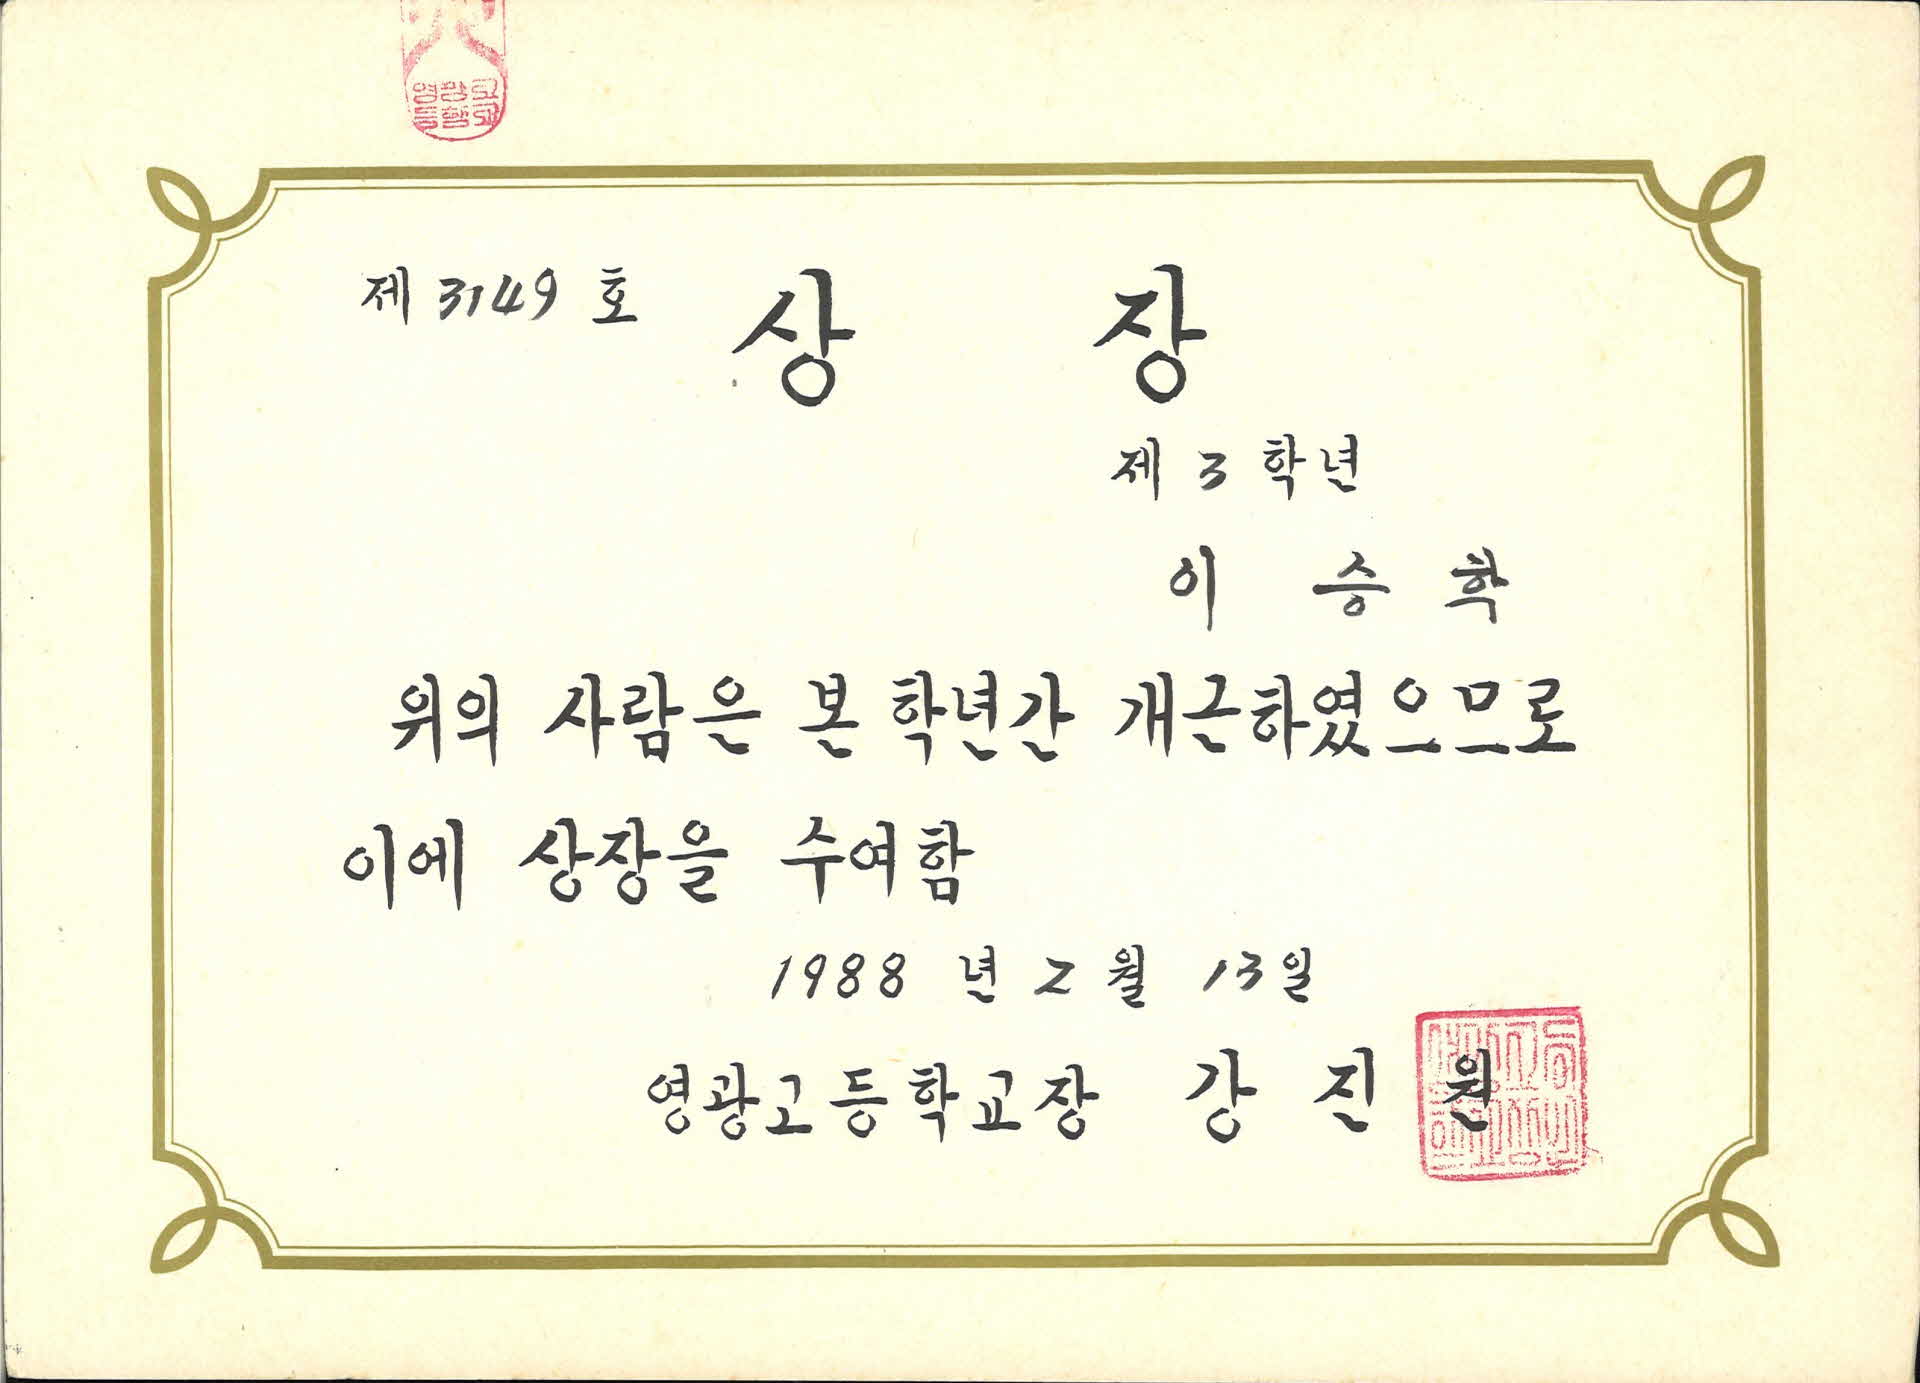 제 3149 호
상 장
제 3 학년
이 승 학
위의 사람은 본 학년간 개근하였으므로
이에 상장을 수여함
1988 년 2 월 13일
영광고등학교장 강 진 원